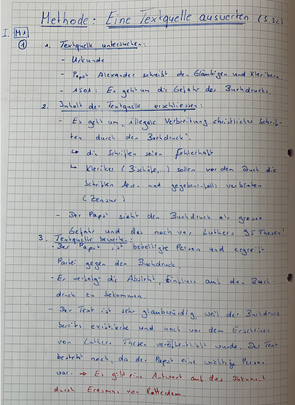 Methode: Eine Textquelle auswerten (S. 32)
I. M1
① 1. Textquelle untersuchen:
- Urkunde
- Papst Alexander schreibt den Gläubigen und Klerikern
- 1501: Es geht um die Gefahr des Buchdrucks
2. Inhalt der Textquelle erschliessen:
- Es geht um "illegale Verbreitung christlicher Schrif-
ten durch den Buchdruck".
↳ die Schriften seien fehlerhaft
↳ Kleriker (Bischöfe, ) sollen vor dem Druck die
Schriften lesen und gegebenenfalls verbieten
(Zensur)
- Der Papst sieht den Buchdruck als grosse
Gefahr und das noch vor Luthers 95 Thesen!
3. Textquelle bewerten:
- Der Papst ist beteiligte Person und ergreift
Partei gegen den Buchdruck.
- Er verfolgt die Absicht, Einfluss auf den Buch-
druck zu bekommen.
- Der Text ist sehr glaubwürdig, weil der Buchdruck
bereits existierte und noch vor dem Erscheinen
von Luthers Thesen veröffentlicht wurde. Der Text
besteht noch, da der Papst eine wichtige Person
war. → Es gibt eine Antwort auf das Dokument
durch Erasmus von Rotterdam